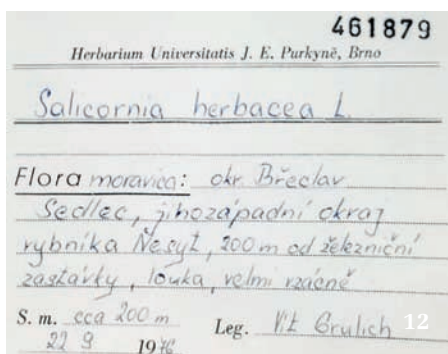 461879
Herbarium Universitatis J. E. Purkyně, Brno
Salicornia herbacea L.
Flora moravica: okr. Břeclav
Sedlec, jihozápadní okraj
rybníka Nesyt, 200 m od železniční
zastávky, louka, velmi vzácně
S. m. cca 200 m Leg. Vít Grulich 12
22 9 1976